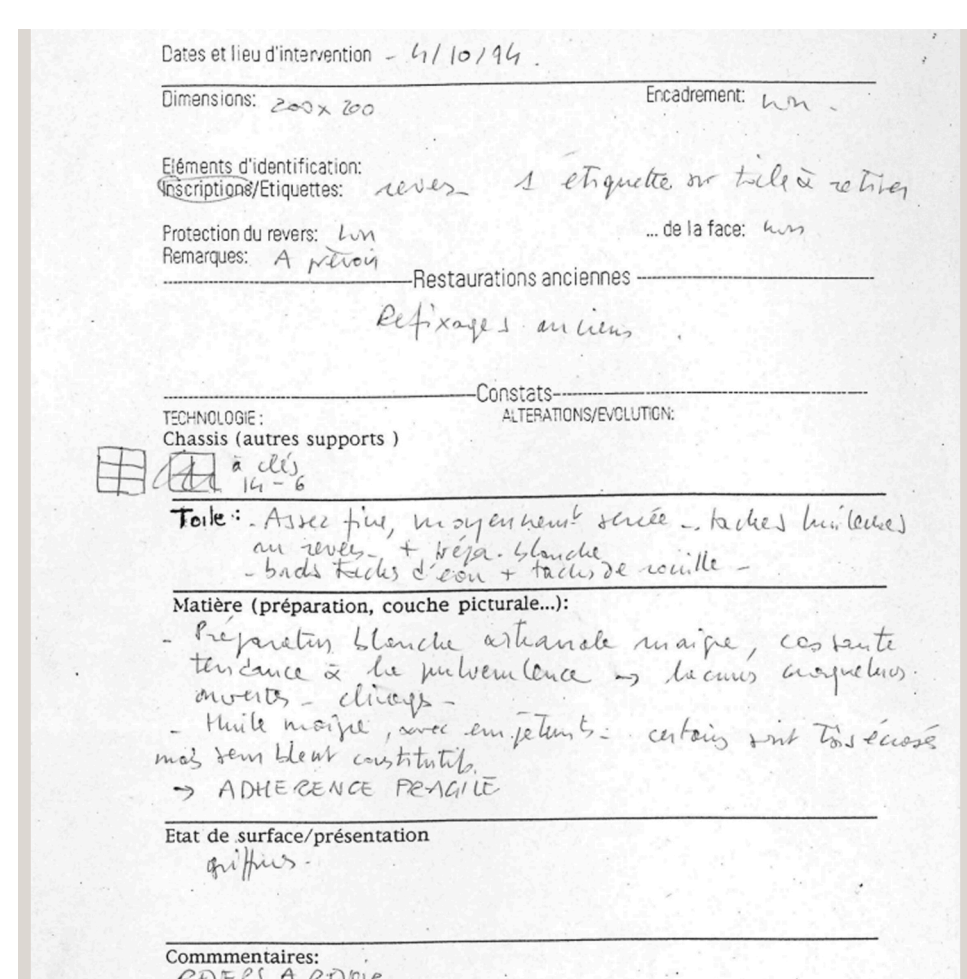 Dates et lieu d'intervention - 4/10/94.
Dimensions: 200x200 Encadrement: non -
Eléments d'identification:
Inscriptions/Etiquettes: revers 1 étiquette sur toile à retirer
Protection du revers: non ... de la face: non
Remarques: A prévoir
Restaurations anciennes
Refixages anciens.
Constats
TECHNOLOGIE: ALTERATIONS/EVOLUTION:
Chassis (autres supports )
à clés
14-6
Toile: - Assez fine, moyennement serrée - taches huileuses
au revers - + prépa. blanche
- bords taches d'eau + taches de rouille -
Matière (préparation, couche picturale...):
- Préparation blanche artisanale maigre, cassante
tendance à la pulvérulence → lacunes craquelures
ouvertes - clivages -
- Huile maigre, avec empâtements - certains sont très écrasés
mais semblent constitutifs.
→ ADHERENCE FRAGILE
Etat de surface/présentation
griffures.
Commmentaires: